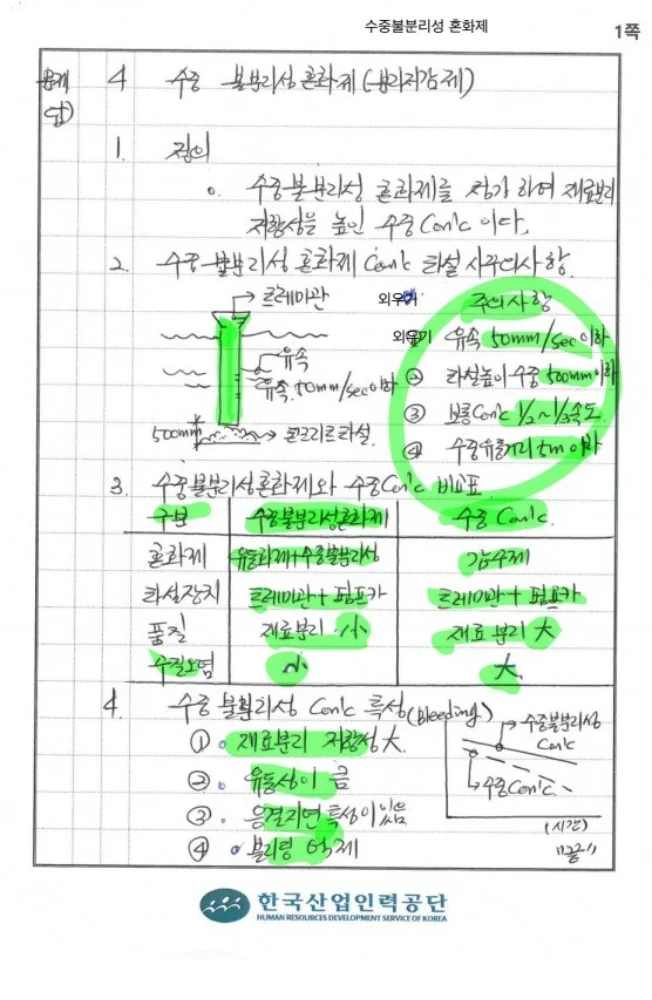 수중불분리성 혼화제
1쪽
문제 4 수중 불분리성 혼화제(분리저감제)
답)
1. 정의
o. 수중불분리성 혼화제를 첨가 하여 재료분리
저항성을 높인 수중 Con'c 이다.
2. 수중 불분리성 혼화제 Con'c 타설 시 주의사항.
트레미관
유속
유속. 50mm/sec이하
500mm
콘크리트 타설.
외우기 주의사항
외우기 유속 50mm/sec 이하
② 타설높이 수중 500mm이하
③ 보통Con'c 1/2~1/3속도.
④ 수중유동거리 5m 이하
3. 수중불분리성혼화제와 수중Con'c 비교표
구분 수중불분리성혼화제 수중 Con'c.
혼화제 유동화제+수중불분리성 감수제
타설장치 트레미관+펌프카 트레미관+펌프카
품질 재료분리 小 재료 분리 大
수질오염 小 大
4. 수중 불분리성 Con'c 특성
① 재료분리 저항성 大.
② 유동성이 큼
③ 응결지연 특성이 있음
④ 블리딩 억제
(Bleeding)
수중불분리성
Con'c
수중Con'c.
(시간)
"끝"
한국산업인력공단
HUMAN RESOURCES DEVELOPMENT SERVICE OF KOREA